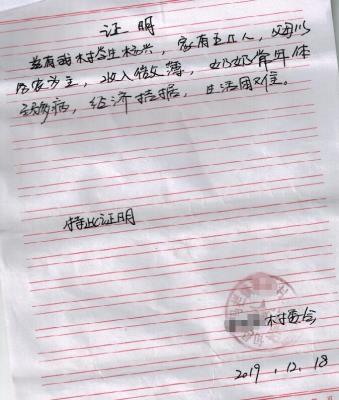 证明
兹有我村学生杨兴，家有五口人，父母以
务农为主，收入微薄，奶奶常年体
弱多病，经济拮据，生活困难。
特此证明
村委会
2019.12.18